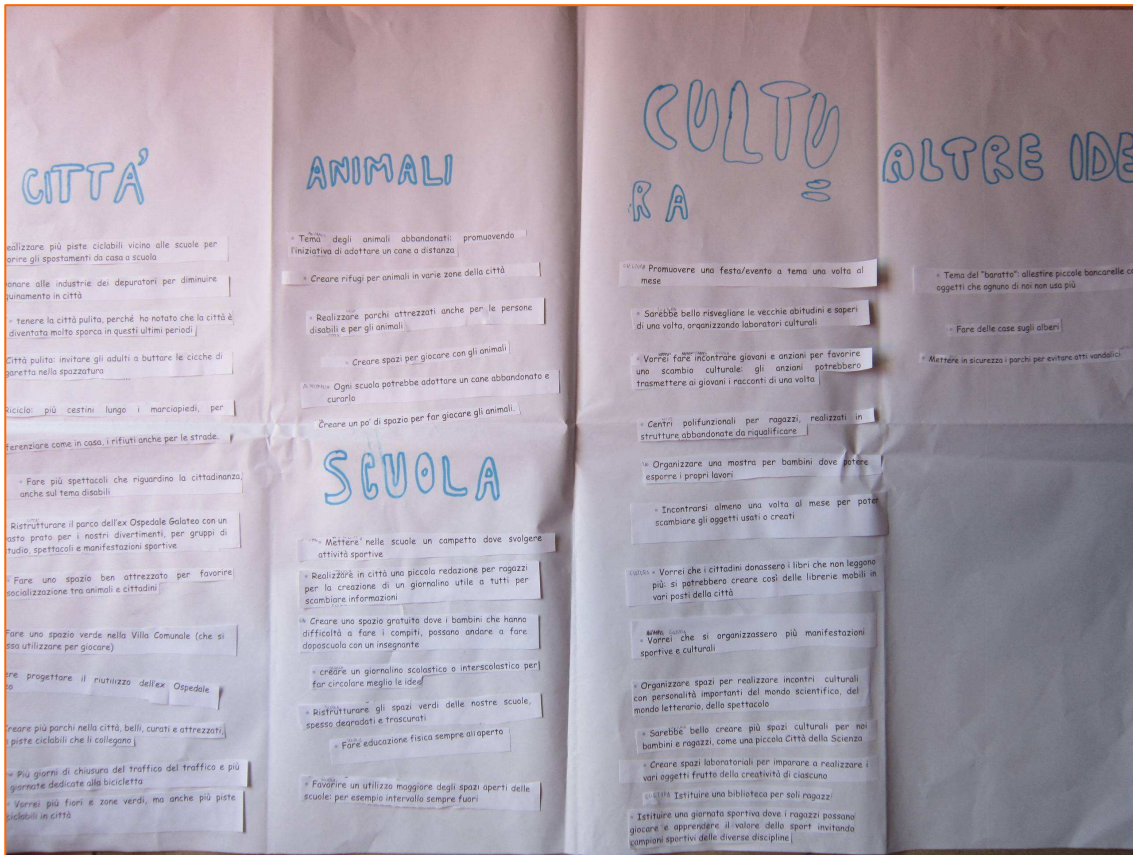 CITTÀ
ealizzare più piste ciclabili vicino alle scuole per
orire gli spostamenti da casa a scuola
onare alle industrie dei depuratori per diminuire
quinamento in città
tenere la città pulita, perché ho notato che la città è
diventata molto sporca in questi ultimi periodi
Città pulita: invitare gli adulti a buttare le cicche di
garetta nella spazzatura
Riciclo: più cestini lungo i marciapiedi, per
ferenziare come in casa, i rifiuti anche per le strade.
Fare più spettacoli che riguardino la cittadinanza,
anche sul tema disabili
Ristrutturare il parco dell'ex Ospedale Galateo con un
asto prato per i nostri divertimenti, per gruppi di
tudio, spettacoli e manifestazioni sportive
Fare uno spazio ben attrezzato per favorire
socializzazione tra animali e cittadini
Fare uno spazio verde nella Villa Comunale (che si
ssa utilizzare per giocare)
re progettare il riutilizzo dell'ex Ospedale
Creare più parchi nella città, belli, curati e attrezzati,
piste ciclabili che li collegano
Più giorni di chiusura del traffico del traffico e più
giornate dedicate alla bicicletta
Vorrei più fiori e zone verdi, ma anche più piste
ciclabili in città
ANIMALI
Tema degli animali abbandonati: promuovendo
l'iniziativa di adottare un cane a distanza
Creare rifugi per animali in varie zone della città
Realizzare parchi attrezzati anche per le persone
disabili e per gli animali
Creare spazi per giocare con gli animali
Ogni scuola potrebbe adottare un cane abbandonato e
curarlo
Creare un po' di spazio per far giocare gli animali.
SCUOLA
Mettere nelle scuole un campetto dove svolgere
attività sportive
Realizzare in città una piccola redazione per ragazzi
per la creazione di un giornalino utile a tutti per
scambiare informazioni
Creare uno spazio gratuito dove i bambini che hanno
difficoltà a fare i compiti, possano andare a fare
doposcuola con un insegnante
creare un giornalino scolastico o interscolastico per
far circolare meglio le idee
Ristrutturare gli spazi verdi delle nostre scuole,
spesso degradati e trascurati
Fare educazione fisica sempre all'aperto
Favorire un utilizzo maggiore degli spazi aperti delle
scuole: per esempio intervallo sempre fuori
CULTU=
RA
Promuovere una festa/evento a tema una volta al
mese
Sarebbe bello risvegliare le vecchie abitudini e saperi
di una volta, organizzando laboratori culturali
Vorrei fare incontrare giovani e anziani per favorire
uno scambio culturale: gli anziani potrebbero
trasmettere ai giovani i racconti di una volta
Centri polifunzionali per ragazzi, realizzati in
strutture abbandonate da riqualificare
Organizzare una mostra per bambini dove potere
esporre i propri lavori
Incontrarsi almeno una volta al mese per poter
scambiare gli oggetti usati o creati
Vorrei che i cittadini donassero i libri che non leggono
più: si potrebbero creare così delle librerie mobili in
vari posti della città
Vorrei che si organizzassero più manifestazioni
sportive e culturali
Organizzare spazi per realizzare incontri culturali
con personalità importanti del mondo scientifico, del
mondo letterario, dello spettacolo
Sarebbe bello creare più spazi culturali per noi
bambini e ragazzi, come una piccola Città della Scienza
Creare spazi laboratoriali per imparare a realizzare i
vari oggetti frutto della creatività di ciascuno
Istituire una biblioteca per soli ragazzi
Istituire una giornata sportiva dove i ragazzi possano
giocare e apprendere il valore dello sport invitando
campioni sportivi delle diverse discipline
ALTRE IDE
Tema del "baratto": allestire piccole bancarelle co
oggetti che ognuno di noi non usa più
Fare delle case sugli alberi
Mettere in sicurezza i parchi per evitare atti vandalici